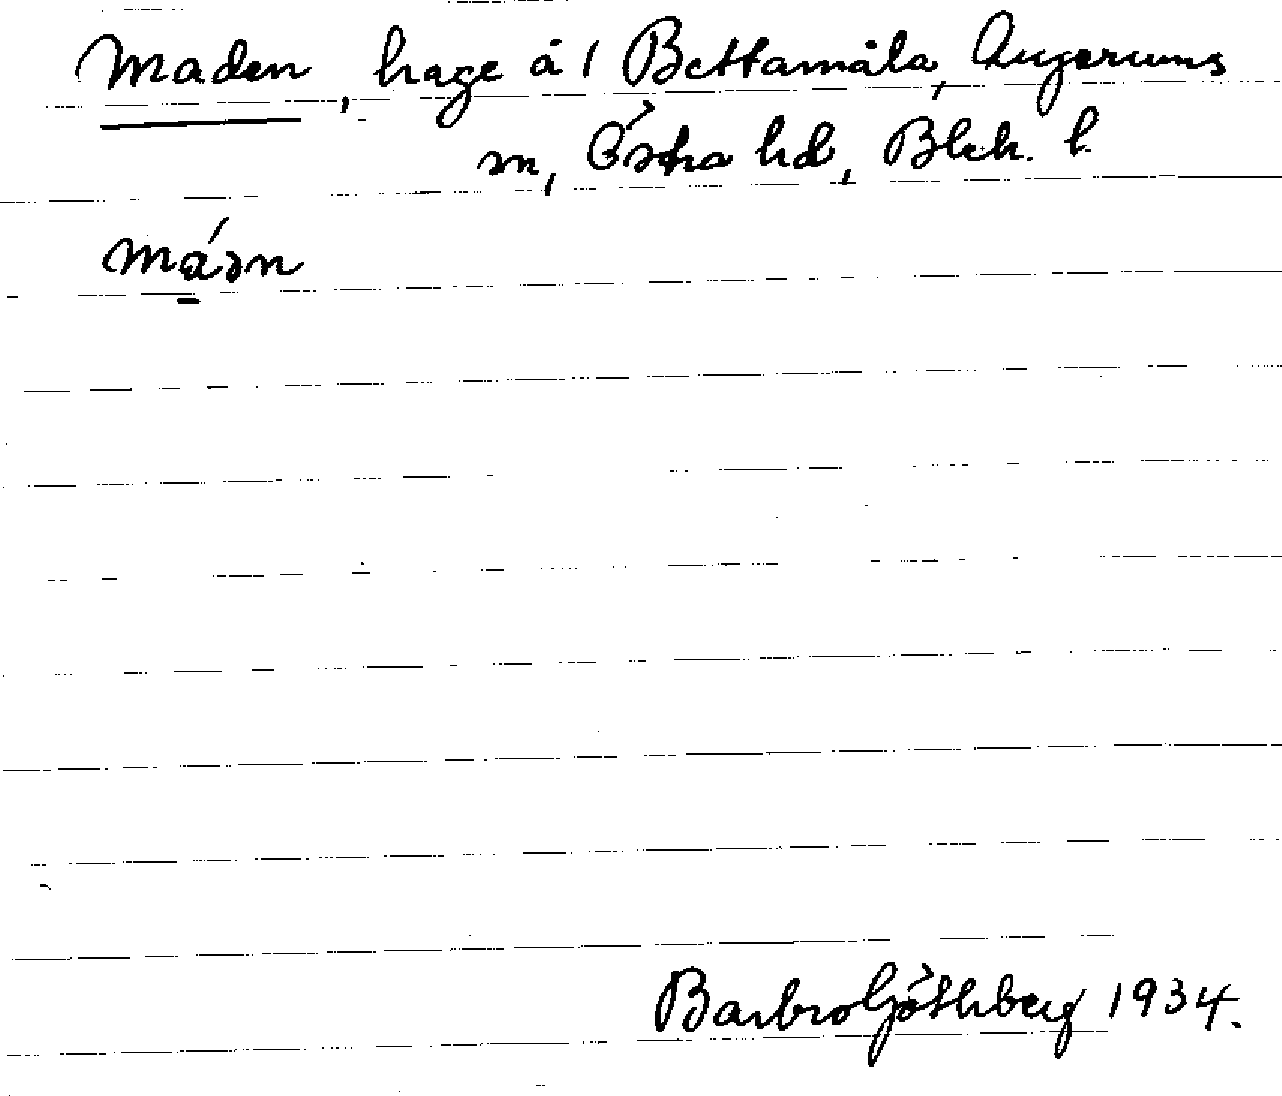 Maden, hage å 1 Bettamåla, Augerums
sn, Östra hd, Blek. l.
máən
Barbro Göthberg 1934.